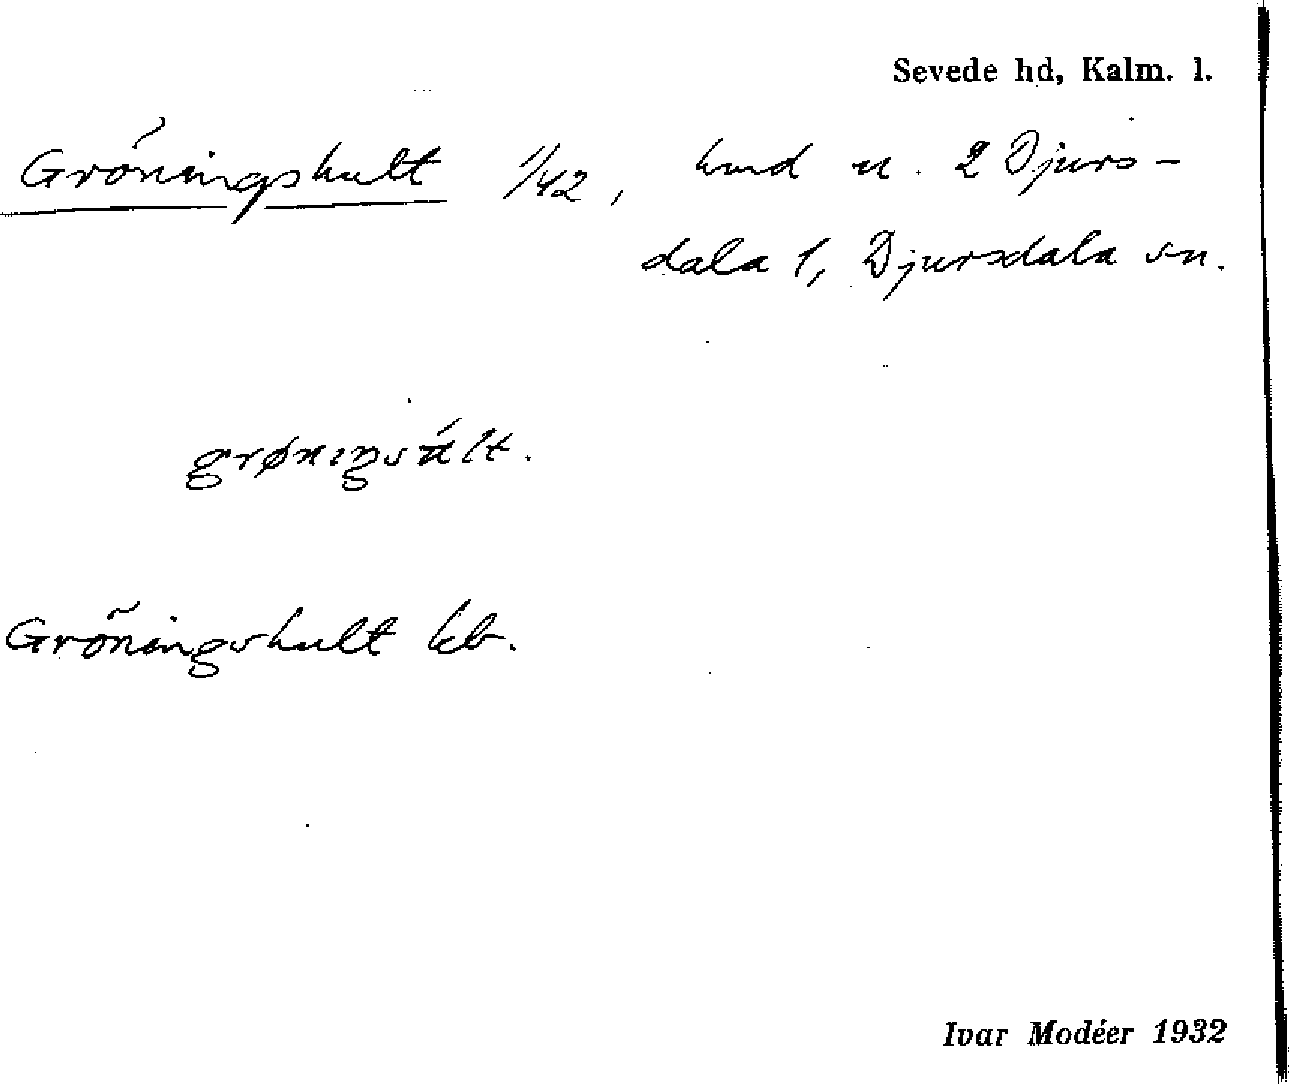 Sevede hd, Kalm. l.
Gröningshult 1/42, hmd u. 2 Djurs-
dala 1, Djursdala sn.
grøningsúlt.
Gröningshult kb.
Ivar Modéer 1932